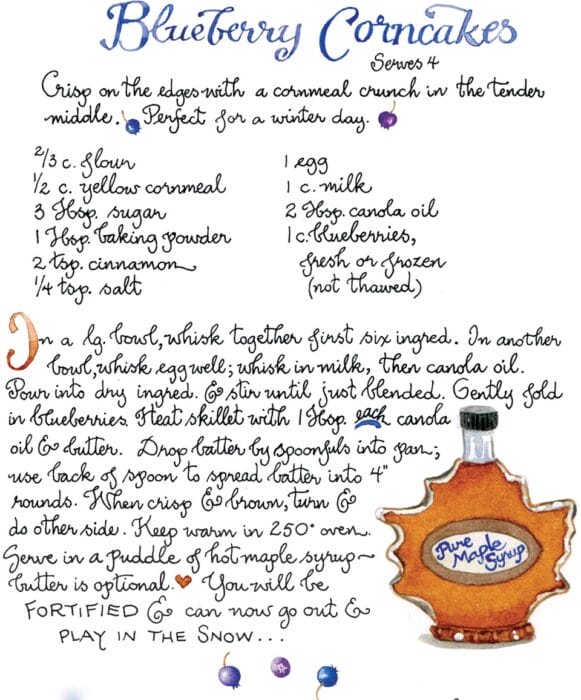 Blueberry Corncakes
Serves 4
Crisp on the edges with a cornmeal crunch in the tender
middle. Perfect for a winter day.
2/3 c. flour
1/2 c. yellow cornmeal
3 Tbsp. sugar
1 Tbsp. baking powder
2 tsp. cinnamon
1/4 tsp. salt
1 egg
1 c. milk
2 Tbsp. canola oil
1 c. blueberries,
fresh or frozen
(not thawed)
In a lg. bowl, whisk together first six ingred. In another
bowl, whisk egg well; whisk in milk, then canola oil.
Pour into dry ingred. & stir until just blended. Gently fold
in blueberries. Heat skillet with 1 Tbsp. each canola
oil & butter. Drop batter by spoonfuls into pan;
use back of spoon to spread batter into 4"
rounds. When crisp & brown, turn &
do other side. Keep warm in 250° oven.
Serve in a puddle of hot maple syrup~
butter is optional. ♥ You will be
FORTIFIED & can now go out &
PLAY IN THE SNOW...
Pure
Maple
Syrup